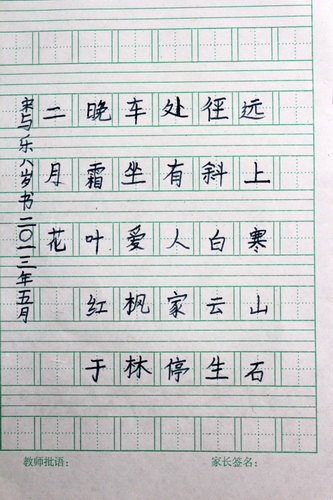 远上寒山石
径斜白云生
处有人家停
车坐爱枫林
晚霜叶红于
二月花
宋与乐八岁书二〇一三年五月
教师批语：
家长签名：